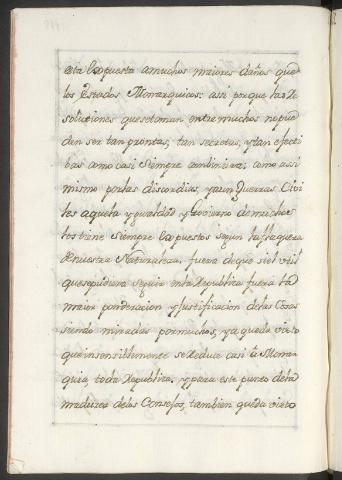 esta expuesta a muchos maiores daños que
los Estados Monarquicos: assi porque las Re
soluciones que se toman entre muchos no pue
den ser tan promtas, tan secretas, y tan efecti
bas como casi siempre combiniera; como assi
mismo por las discordias, y aun Guerras Civi
les aquela ygualdad y Govierno de muchos
los tiene siempre expuestos segun la flaqueza
de nuestra Naturaleza, fuera de que si el util
que se pudiera seguir en la Republica fuera la
maior ponderacion y Justificacion de las Cosas
siendo miradas por muchos, ya queda visto
que insensiblemente se Reduce casi à Monar
quia, toda Republica, y para este punto de la
madurez de los Consejos, tambien queda visto